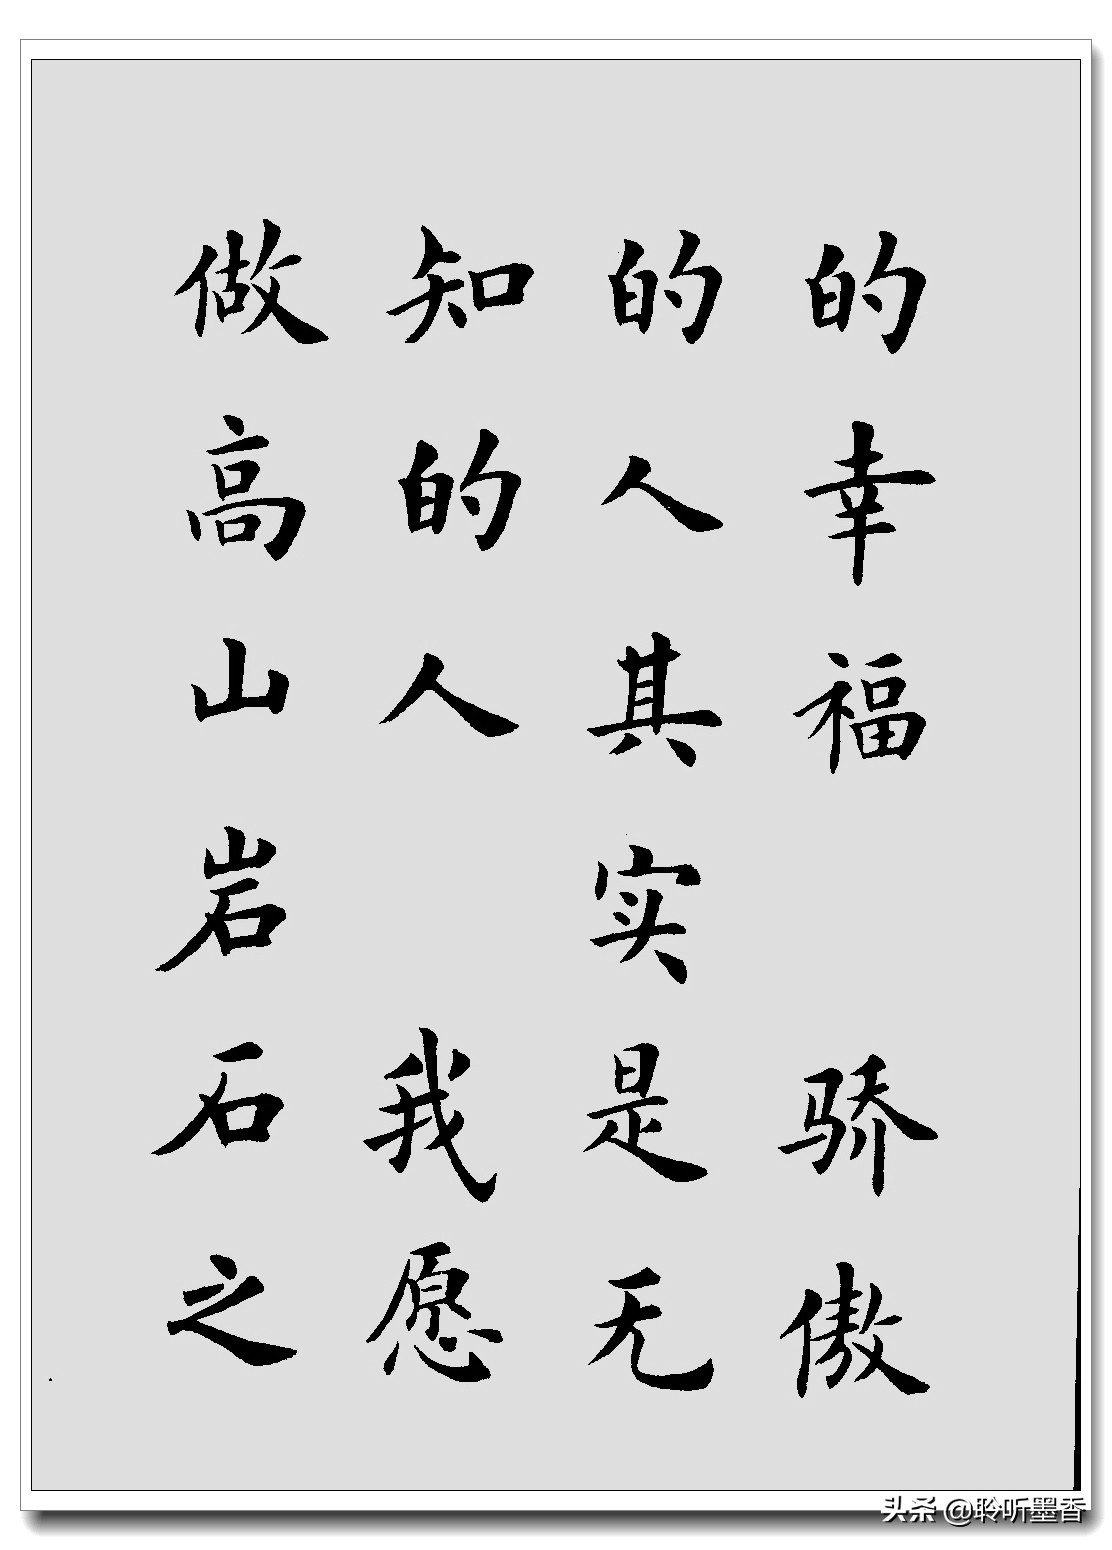 的幸福 骄傲
的人其实是无
知的人 我愿
做高山岩石之
头条 @聆听墨香